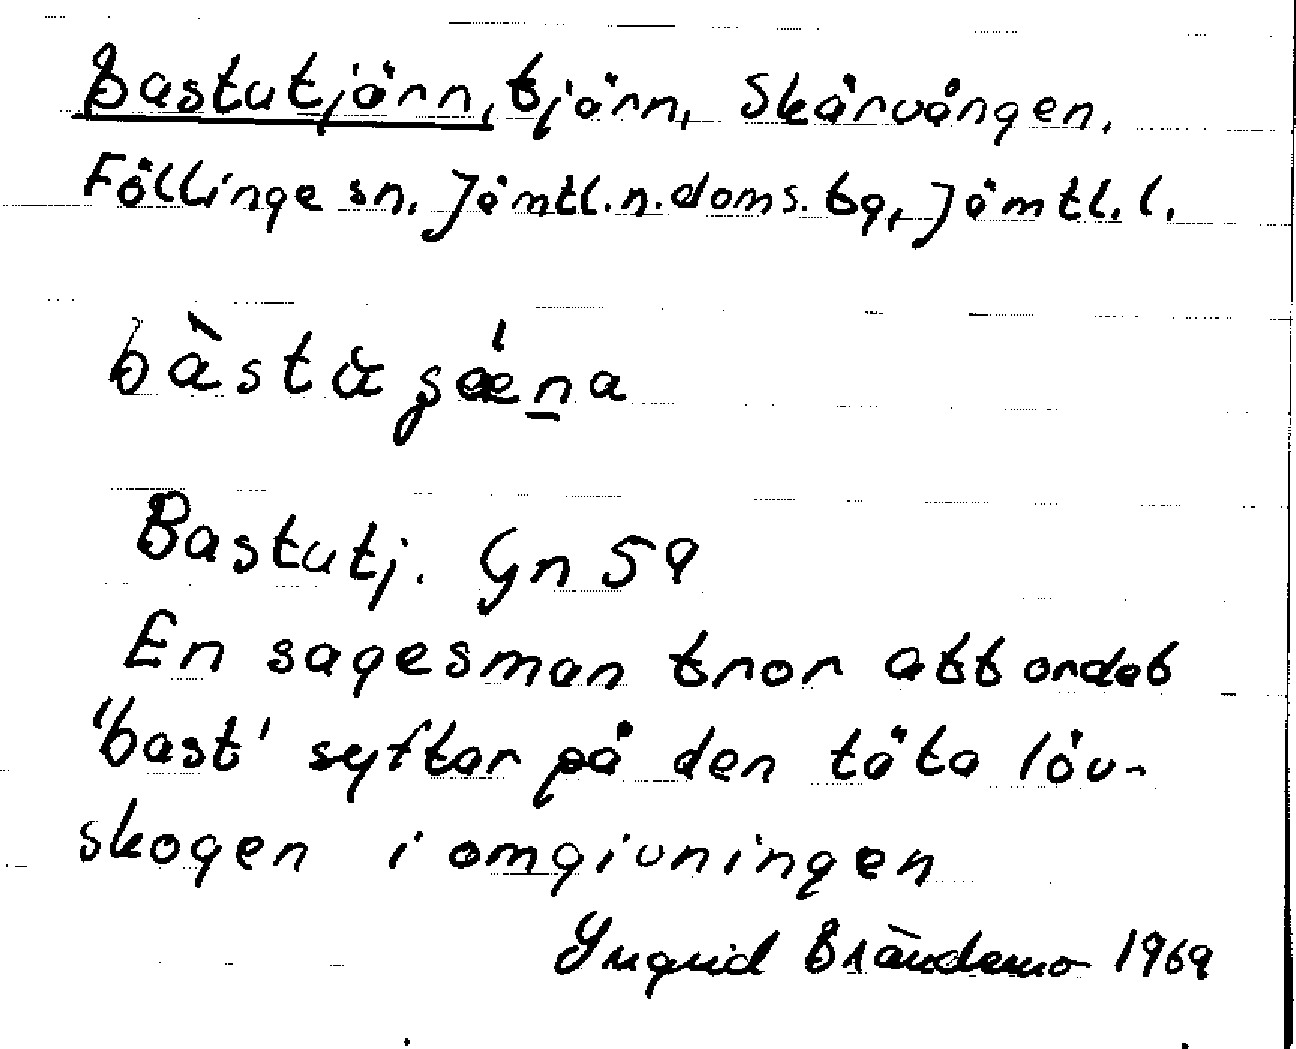 Bastutjärn, tjärn, Skärvången,
Föllinge sn. Jämtl. n. doms. tg, Jämtl. l.
bàstu̇ ʂǽṉa
Bastutj. Gn 59
En sagesman tror att ordet
'bast' syftar på den täta löv-
skogen i omgivningen
Yngvid Brändemo 1969